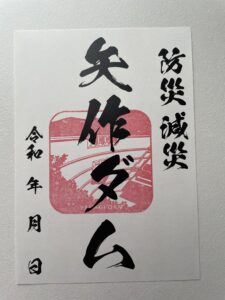 防災減災
矢作ダム
令和 年 月 日